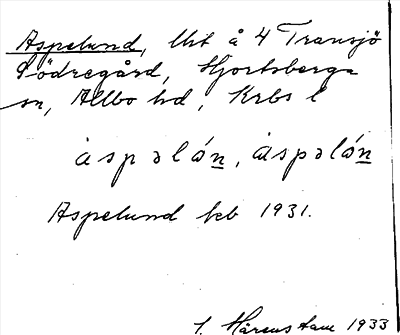 Aspelund, lht å 4 Transjö
Södregård, Hjortsberga
sn, Allbo hd, Krbs l
àspəlón, àspəlón
Aspelund kb 1931.
1933